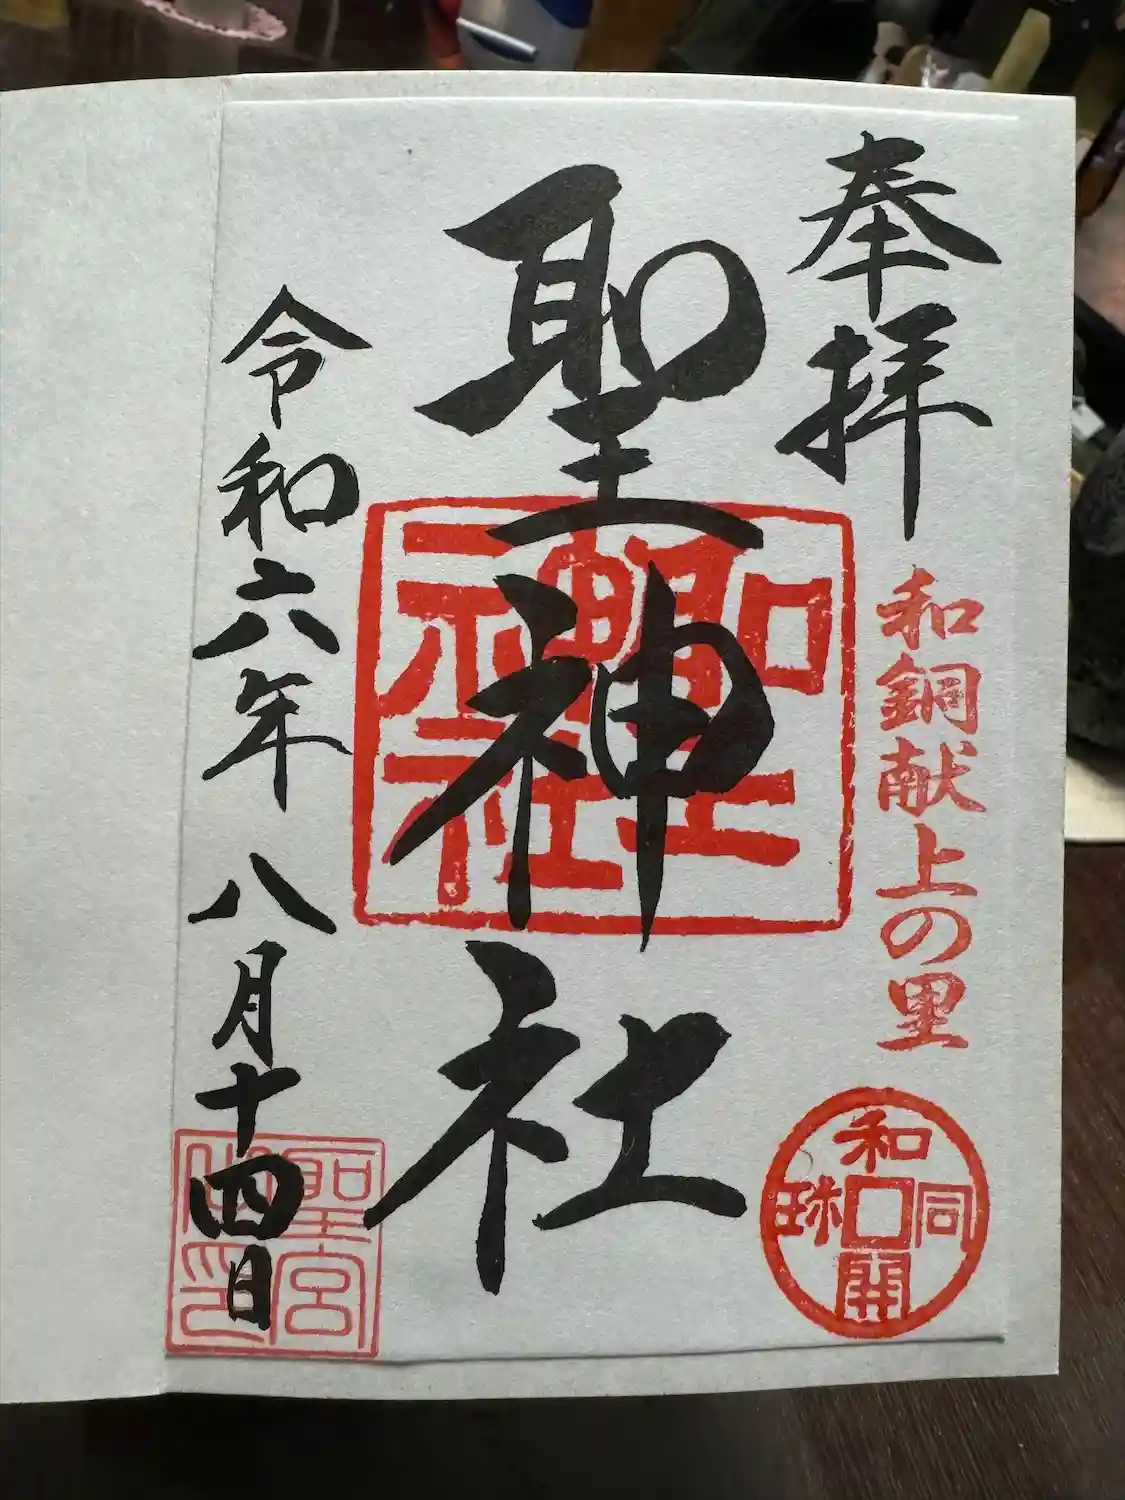 奉拝
和銅献上の里
和同開珎
聖神社
聖神社
令和六年八月十四日
聖宮